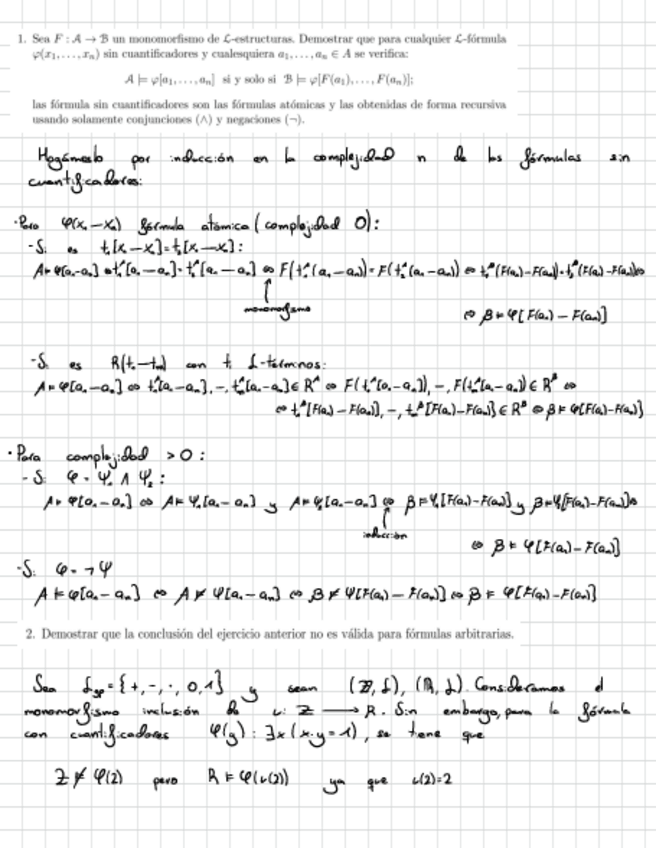 1. Sea F : A → B un monomorfismo de L-estructuras. Demostrar que para cualquier L-fórmula
φ(x₁, . . . , xₙ) sin cuantificadores y cualesquiera a₁, . . . , aₙ ∈ A se verifica:
A ⊨ φ[a₁, . . . , aₙ] si y solo si B ⊨ φ[F(a₁), . . . , F(aₙ)];
las fórmula sin cuantificadores son las fórmulas atómicas y las obtenidas de forma recursiva
usando solamente conjunciones (∧) y negaciones (¬).
Hagámoslo por inducción en la complejidad n de las fórmulas sin
cuantificadores:
·Para φ(x₁—xₙ) fórmula atómica (complejidad 0):
-Si es t₁[x₁—xₙ]=t₂[x₁—xₙ]:
A⊨φ[a₁-aₙ] ⇔ t₁ᴬ[a₁—aₙ]=t₂ᴬ[a₁—aₙ] ⇔ F(t₁ᴬ(a₁-aₙ))=F(t₂ᴬ(a₁-aₙ)) ⇔ t₁ᴮ(F(a₁)-F(aₙ))=t₂ᴮ(F(a₁)-F(aₙ)) ⇔
monomorfismo
⇔ B⊨φ[F(a₁)—F(aₙ)]
-Si es R(t₁—tₘ) con tᵢ L-términos:
A⊨φ[a₁-aₙ] ⇔ t₁ᴬ[a₁-aₙ],-,tₘᴬ[a₁-aₙ]∈Rᴬ ⇔ F(t₁ᴬ[a₁-aₙ]),-,F(tₘᴬ[a₁-aₙ])∈Rᴮ ⇔
⇔ t₁ᴮ[F(a₁)-F(aₙ)],-,tₘᴮ[F(a₁)-F(aₙ)]∈Rᴮ ⇔ B⊨φ[F(a₁)-F(aₙ)]
·Para complejidad >0:
-Si φ=ψ₁∧ψ₂:
A⊨φ[a₁-aₙ] ⇔ A⊨ψ₁[a₁-aₙ] y A⊨ψ₂[a₁-aₙ] ⇔ B⊨ψ₁[F(a₁)-F(aₙ)] y B⊨ψ₂[F(a₁)-F(aₙ)] ⇔
inducción
⇔ B⊨φ[F(a₁)-F(aₙ)]
-Si φ=¬ψ
A⊨φ[a₁-aₙ] ⇔ A⊭ψ[a₁-aₙ] ⇔ B⊭ψ[F(a₁)—F(aₙ)] ⇔ B⊨φ[F(a₁)-F(aₙ)]
2. Demostrar que la conclusión del ejercicio anterior no es válida para fórmulas arbitrarias.
Sea L={+,-,·,0,1} y sean (Z,L), (R,L). Consideramos el
monomorfismo inclusión de ι: Z → R. Sin embargo, para la fórmula
con cuantificadores φ(y): ∃x(x·y=1), se tiene que
Z⊭φ(2) pero R⊨φ(ι(2)) ya que ι(2)=2